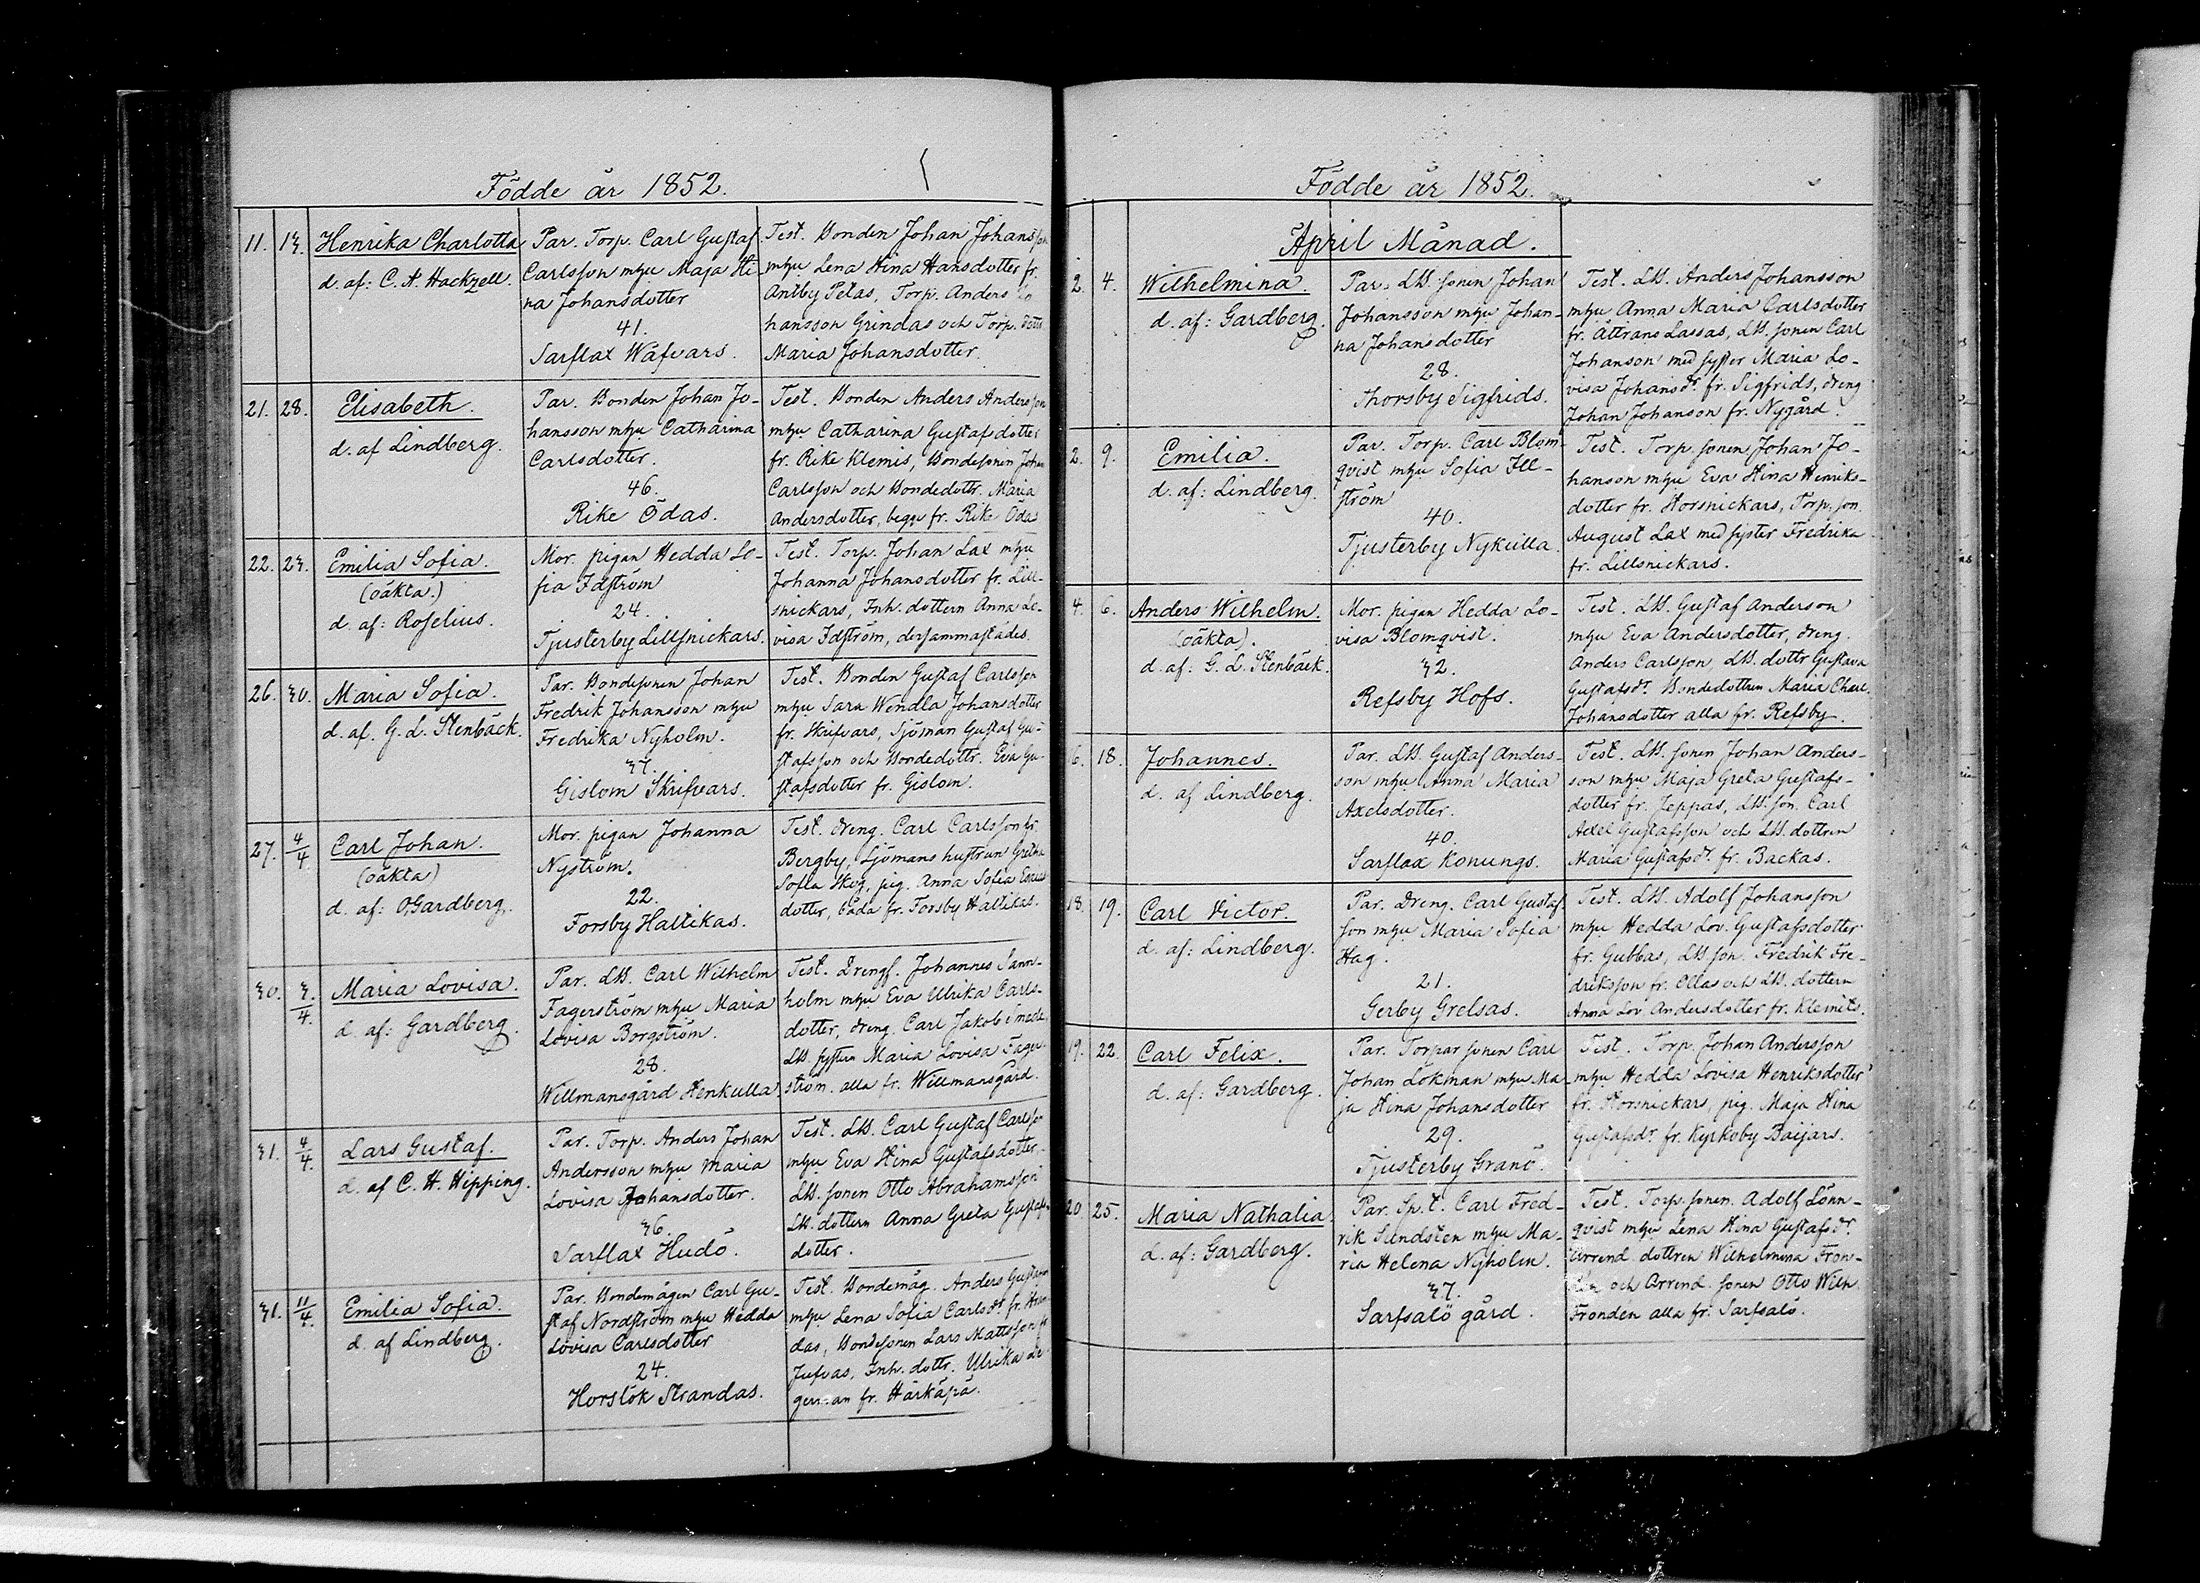 Födde år 1852.
11. 13. Henrika Charlotta
d. af: C. A. Hackzell.
Par. Torp. Carl Gustaf
Carlsson m hu Maja Hi-
na Johansdotter
41.
Sarflax Wafvars.
Test. Bonden Johan Johansson
m hu Lena Stina Hansdotter fr.
Antby Petas, Torp. Anders Jo
hansson Grindas och Torp. dottr
Maria Johansdotter
21. 28. Elisabeth.
d. af Lindberg.
Par. Bonden Johan Jo-
hansson m hu Catharina
Carlsdotter.
46.
Rike Ödas.
Test. Bonden Anders Andersson
m hu Catharina Gustafsdotter
fr. Rike Klemis, Bondesonen Johan
Carlsson och Bondedottr. Maria
Andersdotter, begge fr. Rike Ödas
22. 23. Emilia Sofia.
(oäkta.)
d. af: Roselius.
Mor. pigan Hedda So-
fia Idström
24.
Tjusterby Lillsnickars.
Test. Torp. Johan Lax m hu
Johanna Johansdotter fr. Lill-
snickars, Inh. dottern Anna Lo-
visa Idström, dersammastädes.
26. 30. Maria Sofia.
d. af. G. L. Stenbäck.
Par. Bondesonen Johan
Fredrik Johansson m hu
Fredrika Nyholm.
37.
Gislom Skrifvars.
Test. Bonden Gustaf Carlsson
m hu Sara Wendla Johansdotter
fr. Skrifvars, Sjöman Gustaf Gu-
stafsson och Bondedottr. Eva Gu-
stafsdotter fr. Gislom.
27. 4/4 Carl Johan.
(oäkta)
d. af: O, Gardberg.
Mor. pigan Johanna
Nyström.
22.
Forsby Hallikas.
Test. dreng. Carl Carlsson fr.
Bergby, Sjömans hustrun Gretha
Sofia Skog, pig. Anna Sofia
dotter, båda fr. Forsby Hallikas.
30. 3/4. Maria Lovisa.
d. af: Gardberg.
Par. LB. Carl Wilhelm
Fagerström m hu Maria
Lovisa Borgström.
28.
Willmansgård Henkulla.
Test. Drengf. Johannes Sann-
holm m hu Eva Ulrika Carls-
dotter, dreng. Carl Jakob Smeds,
LB. systern Maria Lovisa Fager-
ström. alla fr. Willmansgård.
31. 4/4. Lars Gustaf.
d. af C. H. Hipping.
Par. Torp. Anders Johan
Andersson m hu Maria
Lovisa Johansdotter.
36.
Sarflax Hudö.
Test. LB. Carl Gustaf Carlsson
m hu Eva Stina Gustafsdotter,
LB. sonen Otto Abrahamsson
LB. dottern Anna Greta Gustafs-
dotter.
31. 11/4. Emilia Sofia.
d. af Lindberg.
Par. Bondemågen Carl Gu-
staf Nordström m hu Hedda
Lovisa Carlsdotter
24.
Horslök Strandas.
Test. Bondemåg. Anders Gustafsson
m hu Lena Sofia Carlsdr fr. Stran
das, Bondesonen Lars Mattsson fr
Jufvas, Inh. dottr. Ulrika Le
german fr. Härkäpä.
Födde år 1852.
April Månad.
2. 4. Wilhelmina.
d. af: Gardberg.
Par. LB. sonen Johan
Johansson m hu Johan-
na Johansdotter
28.
Thorsby Sigfrids.
Test. LB. Anders Johansson
m hu Anna Maria Carlsdotter
fr. Åttrans Lassas, LB. sonen Carl
Johanson med syster Maria Lo-
visa Johansdr. fr. Sigfrids, dreng
Johan Johanson fr. Nygård.
2. 9. Emilia.
d. af: Lindberg.
Par. Torp. Carl Blom-
qvist m hu Sofia Ill-
ström
40.
Tjusterby Nykulla.
Test. Torp. sonen Johan Jo-
hanson m hu Eva Stina Henriks-
dotter fr. Storsnickars, Torp. son
August Lax med syster Fredrika
fr. Lillsnickars.
4. 6. Anders Wilhelm.
(oäkta).
d. af: G. L. Stenbäck.
Mor. pigan Hedda Lo-
visa Blomqvist.
32.
Refsby Hofs.
Test. LB. Gustaf Anderson
m hu Eva Andersdotter, dreng.
Anders Carlsson, LB. dottr Gustava
Gustafsdr. Bondedottren Maria Charl.
Johansdotter alla fr. Refsby.
6. 18. Johannes.
d. af Lindberg.
Par. LB. Gustaf Anders-
son m hu Anna Maria
Axelsdotter.
40.
Sarflax Konungs.
Test. LB. sonen Johan Anders-
son m hu Maja Greta Gustafs-
dotter fr. Jeppas, LB. son. Carl
Axel Gustafsson och LB. dottren
Maria Gustafsdr. fr. Backas.
18. 19. Carl Victor.
d. af: Lindberg.
Par. Dreng. Carl Gustaf
son m hu Maria Sofia
Hag.
21.
Gerby Grelsas.
Test. LB. Adolf Johansson
m hu Hedda Lov. Gustafsdotter
fr. Gubbas, LB. son. Fredrik Fre-
driksson fr. Ollas och LB. dottern
Anna Lov Andersdotter fr. Klemets.
19. 22. Carl Felix.
d. af: Gardberg.
Par. Torpar sonen Carl
Johan Lökman m hu Ma-
ja Stina Johansdotter
29.
Tjusterby Granö.
Test. Torp. Johan Andersson
m hu Hedda Lovisa Henriksdotter
fr. Storsnickars, pig. Maja Stina
Gustafsdr. fr. Kyrkoby Baijars.
20 25. Maria Nathalia.
d. af: Gardberg.
Par. Sp.t. Carl Fred-
rik Sundsten m hu Ma-
ria Helena Nyholm.
37.
Sarfsalö gård.
Test. Torp. sonen. Adolf Lönn-
qvist m hu Lena Stina Gustafsdr.
Arrend dottren Wilhelmina Fron-
den och Arrend. sonen Otto Wilh.
Fronden alla fr. Sarfsalö.